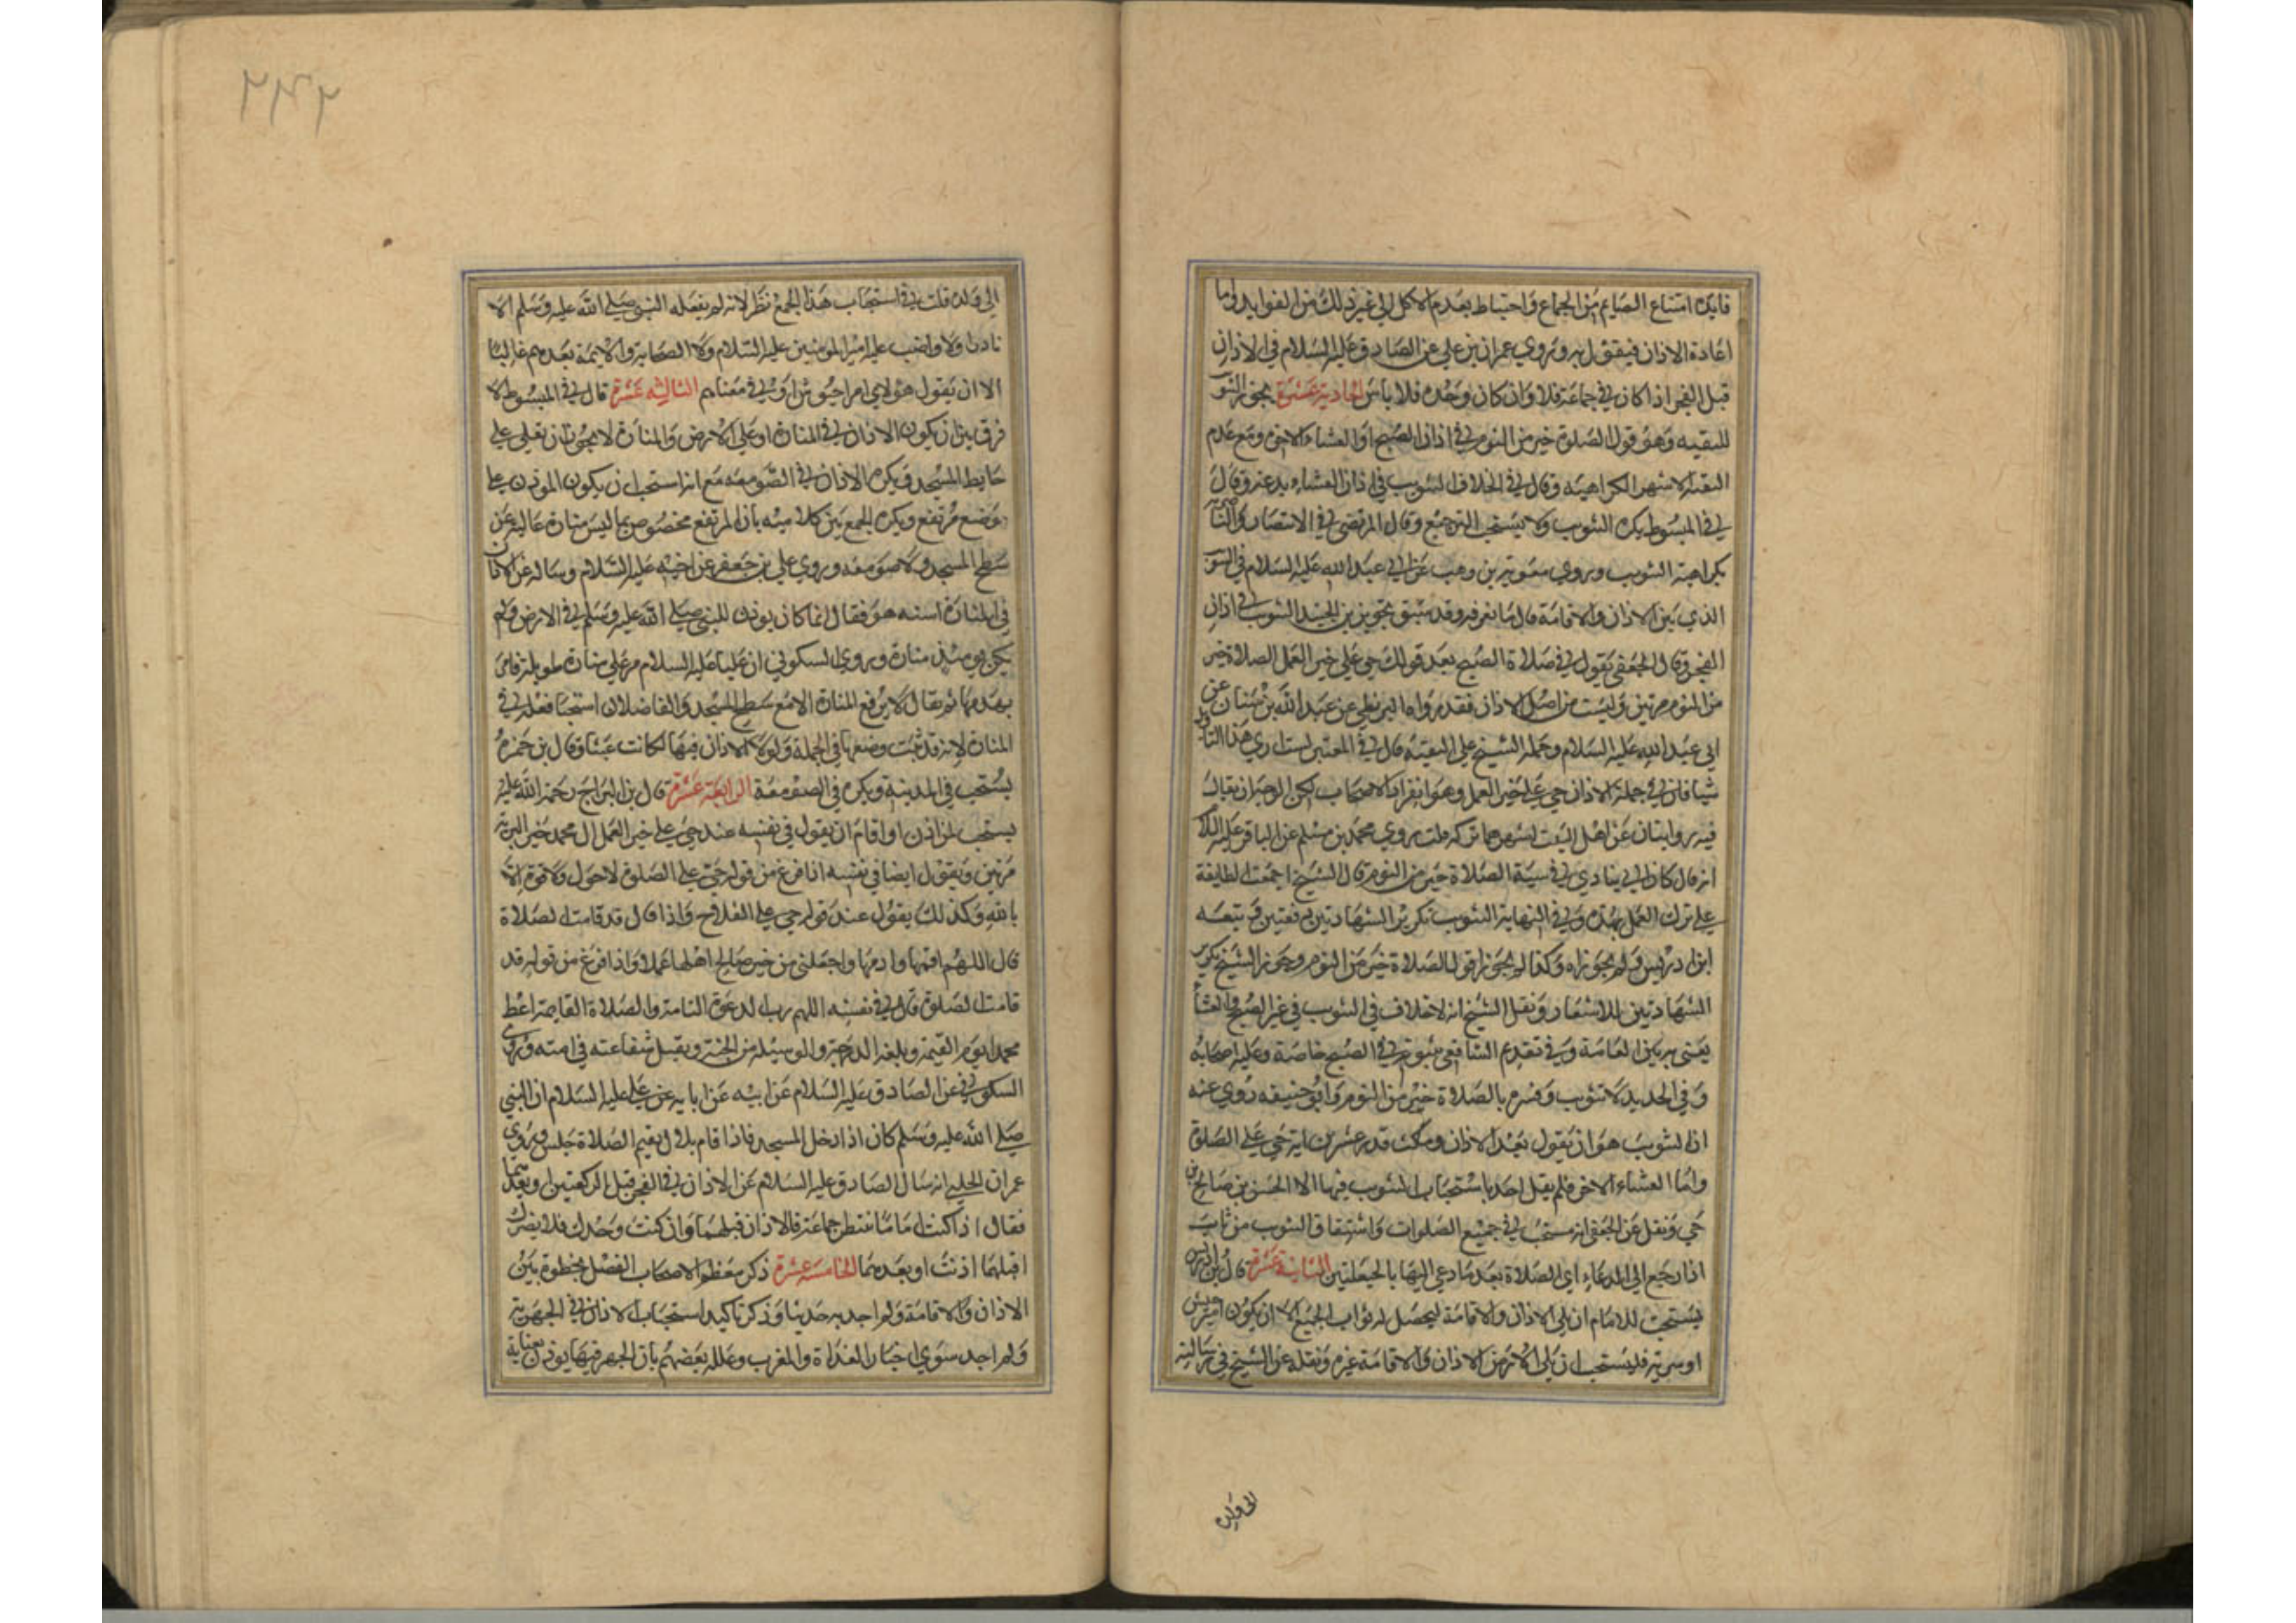 فايدة امتناع الصايم من الجماع واحتياط بعدم الاكل الى غير ذلك من الفوايد واما
اعادة الاذان فيقول به وروي عمران بن علي عن الصادق عليه السلام في الاذان
قبل الفجر اذا كان في جماعة فلا وان كان وحده فلا باس الحادية عشرة يجوز التثويب
للتقيه وهو قول الصلوة خير من النوم في اذان الصبح او العشاء الاخرة ومع عدم
التقية الاشهر الكراهية وقال في الخلاف التثويب في اذان العشاء بدعة وقال
في المبسوط يكره التثويب ولا يستحب الترجيع وقال المرتضى في الانتصار والناصرية
بكراهية التثويب وروي معوية بن وهب عن ابي عبد الله عليه السلام في التثويب
الذي بين الاذان والاقامة قال ما نعرفه وقد سبق تجويز بن الجنيد التثويب في اذان
الفجر وقال الجعفي تقول في صلاة الصبح بعد قولك حي على خير العمل الصلاة خير
من النوم مرتين وليست من اصل الاذان فقد رواه البزنطي عن عبد الله بن سنان عن
ابي عبد الله عليه السلام وحمله الشيخ على التقية قال في المعتبر لست اري هذا التاويل
شيا فان في جملة الاذان حي على خير العمل وهو انفراد الاصحاب لكن الوجه ان يقال
فيه روايتان عن اهل البيت اشهرهما تركه قلت وروي محمد بن مسلم عن الباقر عليه السلام
انه قال كان ابي ينادي في بيته الصلاة خير من النوم قال الشيخ اجمعت الطايفة
على ترك العمل بهذه وفي النهاية التثويب تكرير الشهادتين دفعتين وتبعه
ابن ادريس ولم يجوزاه وكذا لم يجوزا قول الصلاة خير من النوم وجوز الشيخ تكرير
الشهادتين للاشعار ونقل الشيخ انه لا خلاف في التثويب في غير الصبح والعشا
يعني به بين العامة وفي تقديم الشافعي ثبوته في الصبح خاصة وعليه اصحابه
وفي الجديد لا تثويب وفسره بالصلاة خير من النوم وابو حنيفه روي عنه
ان التثويب هو ان يقول بعد الاذان ومكث قدر عشرين اية حي على الصلوة
واما العشاء الاخرة فلم يقل احد باستحباب التثويب فيها الا الحسن بن صالح بن
حي ونقل عن الجعفي انه مستحب في جميع الصلوات واشتقاق التثويب من ثاب
اذا رجع الى الدعاء اي الصلاة بعد ما دعي اليها بالحيعلتين الثانية عشرة قال ابن ادريس
يستحب للامام ان يلي الاذان والاقامة ليحصل له ثواب الجميع الا ان يكون امير جيش
او سرية فليستحب ان يلي الاذان والاقامة غيره ونقله عن الشيخ في رسالته
الى ولده
٢٤٢
الى ولده قلت في استحباب هذا الجمع نظر لانه لم يفعله النبي صلى الله عليه وسلم الا
نادرا ولا واضب عليه امير المومنين عليه السلام ولا الصحابة والايمة بعدهم غالبا
الا ان يقول هولاء امراء جيوش او في معناهم الثالثه عشرة قال في المبسوط لا
فرق بين ان يكون الاذان في المنارة او على الارض والمنارة لا يجوز ان تعلى على
حايط المسجد ويكره الاذان في الصومعه مع انه استحب ان يكون الموذن على
موضع مرتفع ويكره الجمع بين كلاميه بان المرتفع مخصوص بما ليس منارة عالية عن
سطح المسجد ولا صومعه وروي علي بن جعفر عن اخيه عليه السلام وساله عن الاذان
في المنارة اسنة هو فقال انما كان يوذن للنبي صلى الله عليه وسلم في الارض ولم
يكن يوميذ منارة وروي السكوني ان عليا عليه السلام مر على منارة طويلة فامر
بهدمها ثم قال لا يرفع المنارة الا مع سطح المسجد والفاضلان استحبا فعله في
المنارة لانه قد ثبت وضعها في الجملة ولولا الاذان فيها لكانت عبثا وقال بن حمزة
يستحب في المدينة ويكره في الصومعة الرابعة عشرة قال بن البراج رحمة الله عليه
يستحب لمن اذن او اقام ان يقول في نفسه عند حي على خير العمل ال محمد خير البرية
مرتين ويقول ايضا في نفسه اذا فرغ من قوله حي على الصلوة لا حول ولا قوة الا
بالله وكذلك يقول عند قوله حي على الفلاح واذا قال قد قامت الصلاة
قال اللهم اقمها وادمها واجعلني من خير صالح اهلها عملا واذا فرغ من قوله قد
قامت الصلوة قال في نفسه اللهم رب الدعوة التامة والصلاة القايمة اعط
محمدا يوم القيمة وبلغه الدرجة والوسيلة من الجنة وتقبل شفاعته في امته وروي
السكوني عن الصادق عليه السلام عن ابيه عن ابايه عن علي عليه السلام ان النبي
صلى الله عليه وسلم كان اذا دخل المسجد فاذا قام بلال يقيم الصلاة جلس وروي
عمران الحلبي انه سال الصادق عليه السلام عن الاذان في الفجر قبل الركعتين او بعدهما
فقال اذا كنت اماما تنتظر جماعة فالاذان قبلهما وان كنت وحدك فلا يضرك
اقبلهما اذنت او بعدهما الخامسه عشرة ذكر معظم الاصحاب الفصل بخطوة بين
الاذان والاقامة ولم اجد به حديثا وذكر تاكيد استحباب الاذان في الجهرية
ولم اجد سوي اخبار الغداة والمغرب وعلله بعضهم بان الجهر فيها يوذن بعناية